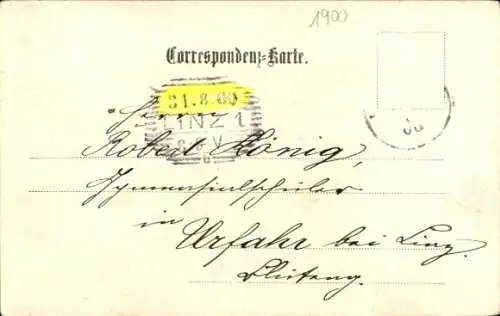 1900
Correspondenz-Karte.
31.8.00
LINZ 1
8 V
Herrn
Robert König,
Gymnasialschüler
in
Urfahr bei Linz.
00